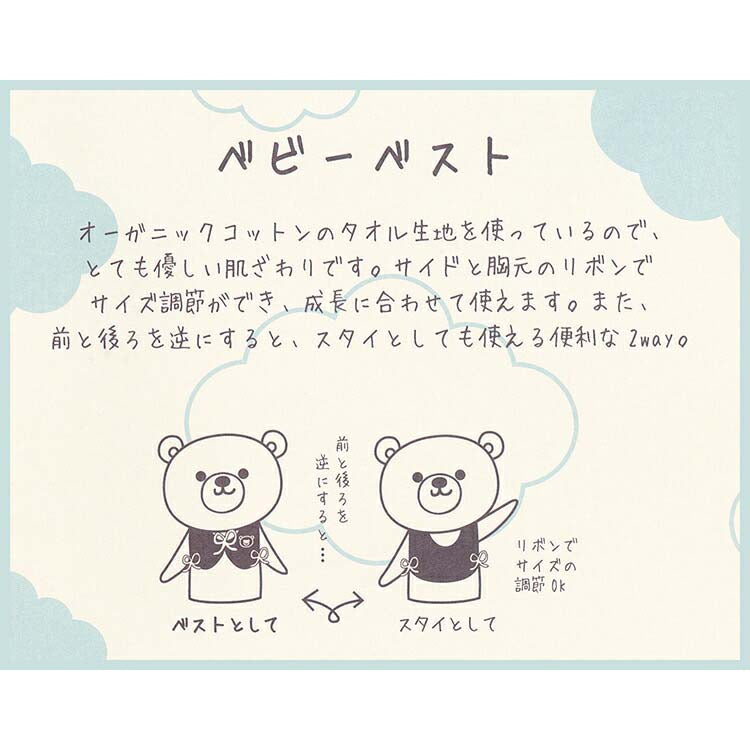 ベビーベスト
オーガニックコットンのタオル生地を使っているので、
とても優しい肌ざわりです。サイドと胸元のリボンで
サイズ調節ができ、成長に合わせて使えます。また、
前と後ろを逆にすると、スタイとしても使える便利な2way。
前と後ろを
逆にすると…
リボンで
サイズの
調節OK
ベストとして
スタイとして